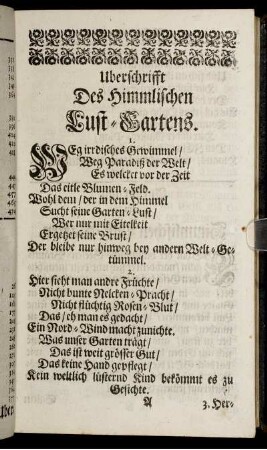 Uberschrifft
Des Himmlischen
Lust-Gartens.
1.
WEg irrdisches Gewimmel/
Weg Paradiß der Welt/
Es welcket vor der Zeit
Das eitle Blumen-Feld.
Wohl dem/ der in dem Himmel
Sucht seine Garten-Lust/
Wer nur mit Eitelkeit
Ergetzet seine Brust/
Der bleibe nur hinweg bey andern Welt-Ge-
tümmel.
2.
Hier sieht man andre Früchte/
Nicht bunte Nelcken-Pracht/
Nicht flüchtig Rosen-Blut/
Das/ eh man es gedacht/
Ein Nord-Wind macht zunichte.
Was unser Garten trägt/
Das ist weit grösser Gut/
Das keine Hand gepflegt/
Kein weltlich lüsternd Kind bekömmt es zu
Gesichte.
A 3. Her-